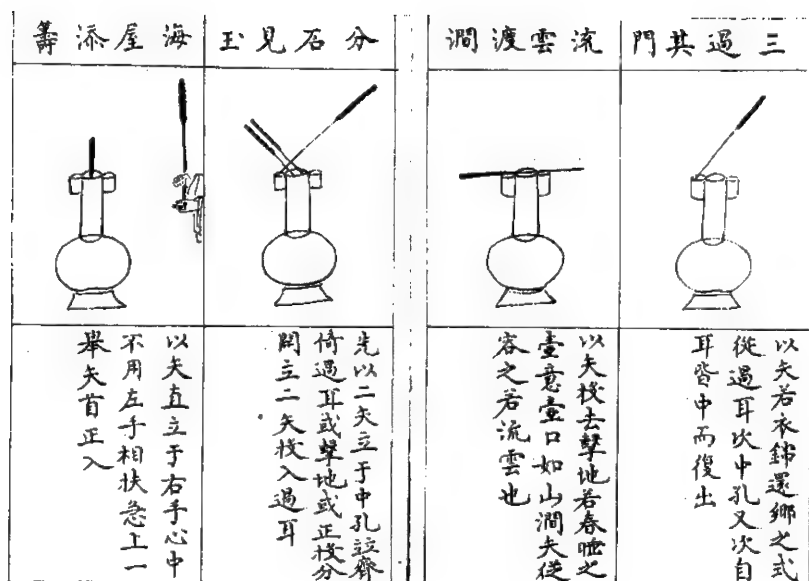 三過其門
以矢若衣錦還鄉之式
從過耳次中孔又次自
耳皆中而復出
流雲渡澗
以矢投去擊地若春睡之
壺意壺口如山澗矢從
容之若流雲也
分石見玉
先以二矢立于中孔竝齊
倚過耳或擊地或正投分
開立二矢投入過耳
海屋添籌
以矢直立于右手心中
不用左手相扶急上一
舉矢首正入